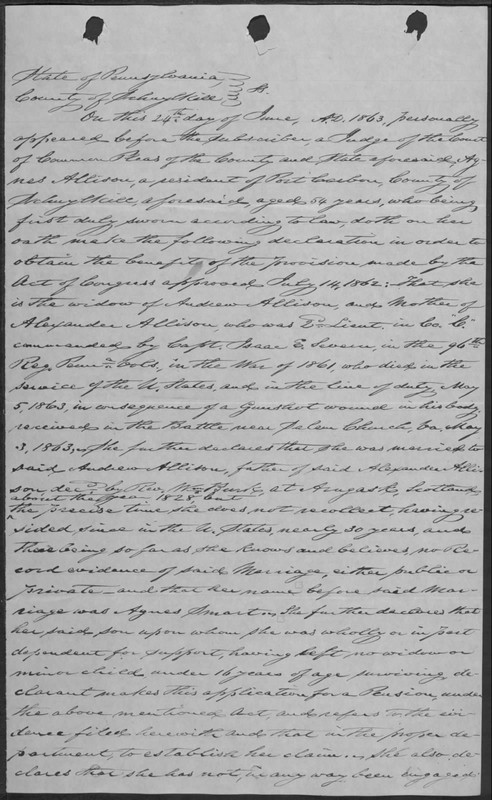 State of Pennsylvania,
County of Schuylkill SS.
On this 24th day of June, A.D. 1863, personally
appeared before the subscriber, a Judge of the Court
of Common Pleas of the County and State aforesaid, Ag-
nes Allison, a resident of Port Carbon, County of
Schuylkill, aforesaid, aged 54 years, who being
first duly sworn according to law, doth on her
oath make the following declaration in order to
obtain the benefit of the provision made by the
Act of Congress approved July 14, 1862: That she
is the widow of Andrew Allison, and Mother of
Alexander Allison, who was 2d Lieut. in Co. C.
commanded by Capt. Isaac E. Severn, in the 96th
Reg. Penna. Vols., in the War of 1861, who died in the
service of the U. States, and in the line of duty, May
5, 1863, in consequence of a Gunshot wound in his body,
received in the Battle near Salem Church, Va. May
3, 1863, She further declares that she was married to
said Andrew Allison, father of said Alexander Alli-
son, decd. by Rev. Wm. at Arngask, Scotland,
about the year 1828, but
the precise time she does not recollect, having re-
sided since in the U. States, nearly 30 years, and
there being so far as she knows and believes, no Re-
cord evidence of said Marriage, either public or
private - and that her name before said Mar-
riage was Agnes Smart. She further declares that
her said son upon whom she was wholly or in part
dependent for support, having left no widow or
minor child under 16 years of age surviving, de-
clarant makes this application for a Pension, under
the above mentioned Act, and refers to the evi-
dence filed herewith and that in the proper de-
partment, to establish her claim. She also de-
clares that she has not, in any way been engaged